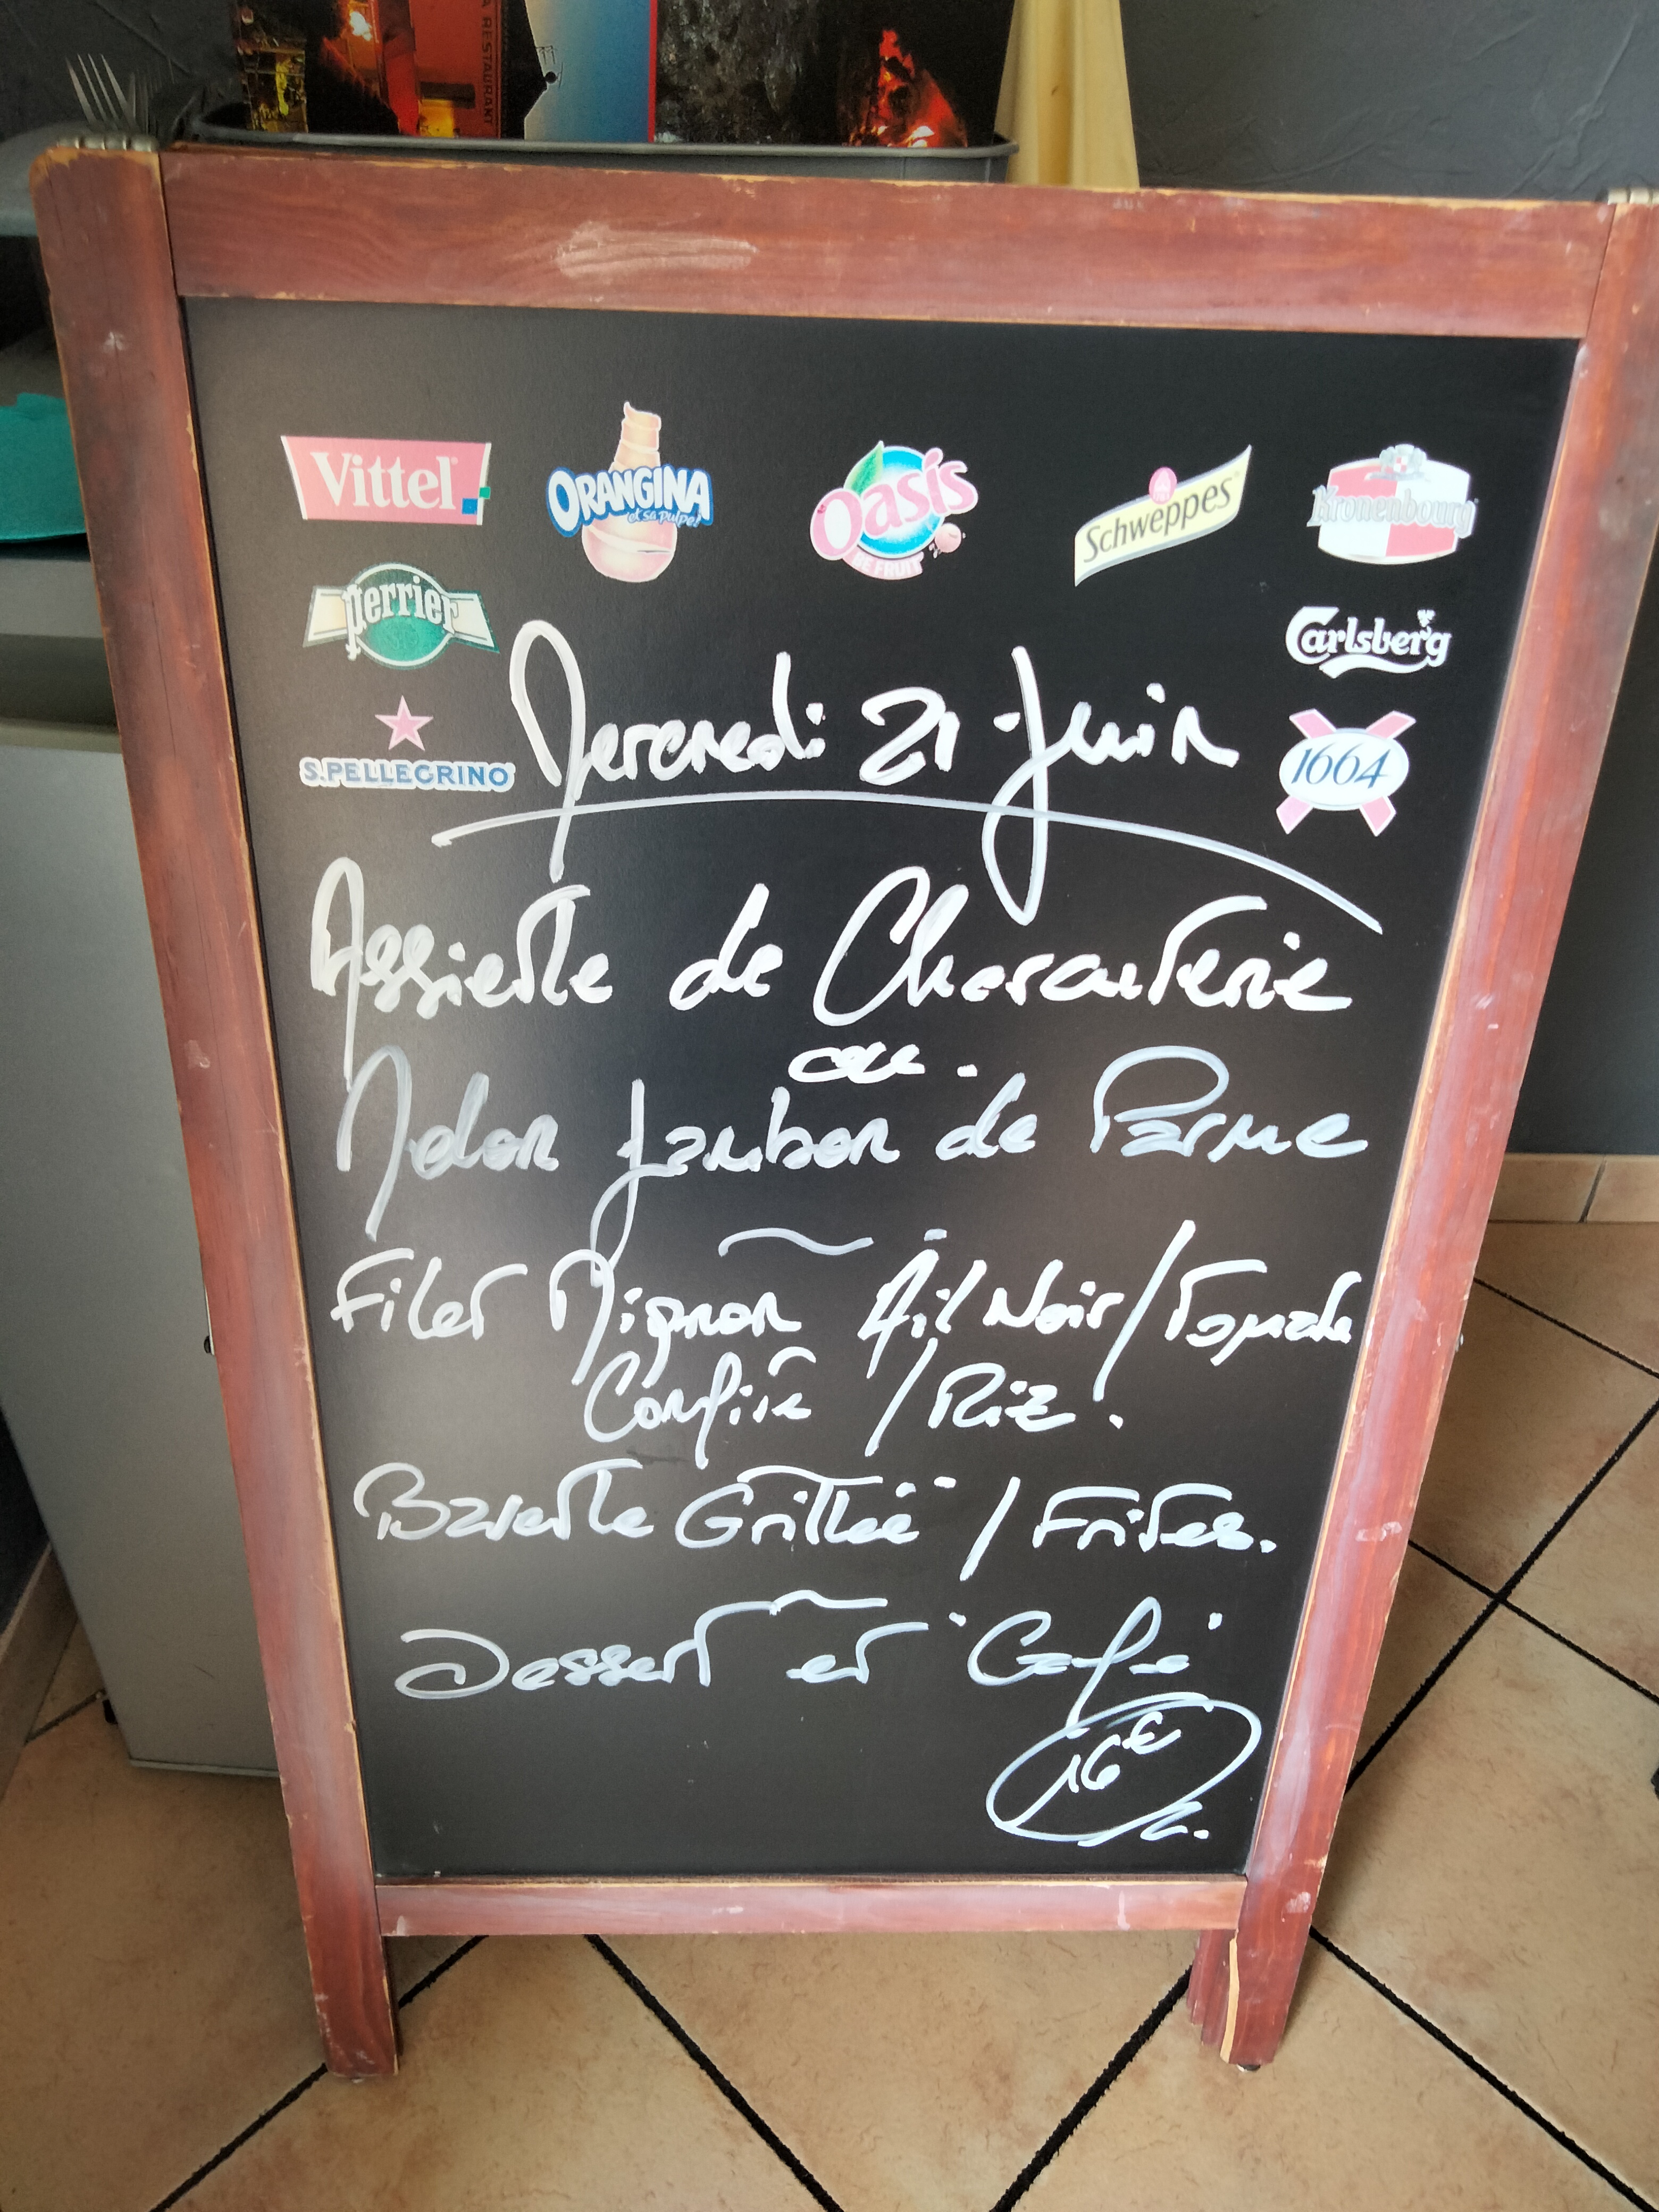 A RESTAURANT
Vittel
ORANGINA
et sa pulpe!
Oasis
DE FRUIT
Schweppes
Kronenbourg
Perrier
Carlsberg
S.PELLEGRINO
1664
Mercredi 21 Juin
Assiette de Charcuterie
ou.
Melon Jambon de Parme
Filet Mignon Ail Noir / Tomate
Confite / Riz.
Bavette Grillée / Frites.
Dessert et Café
16€